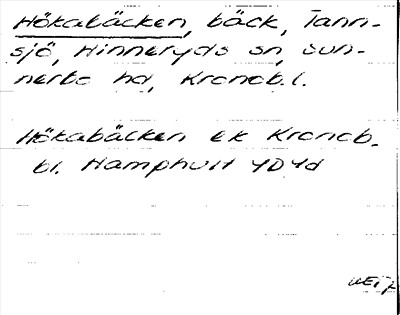 Hökabäcken, bäck, Tann-
sjö, Hinneryds sn, Sun-
nerbo hd, Kronob. l.
Hökabäcken ek Kronob.
bl. Hamphult 4D4d